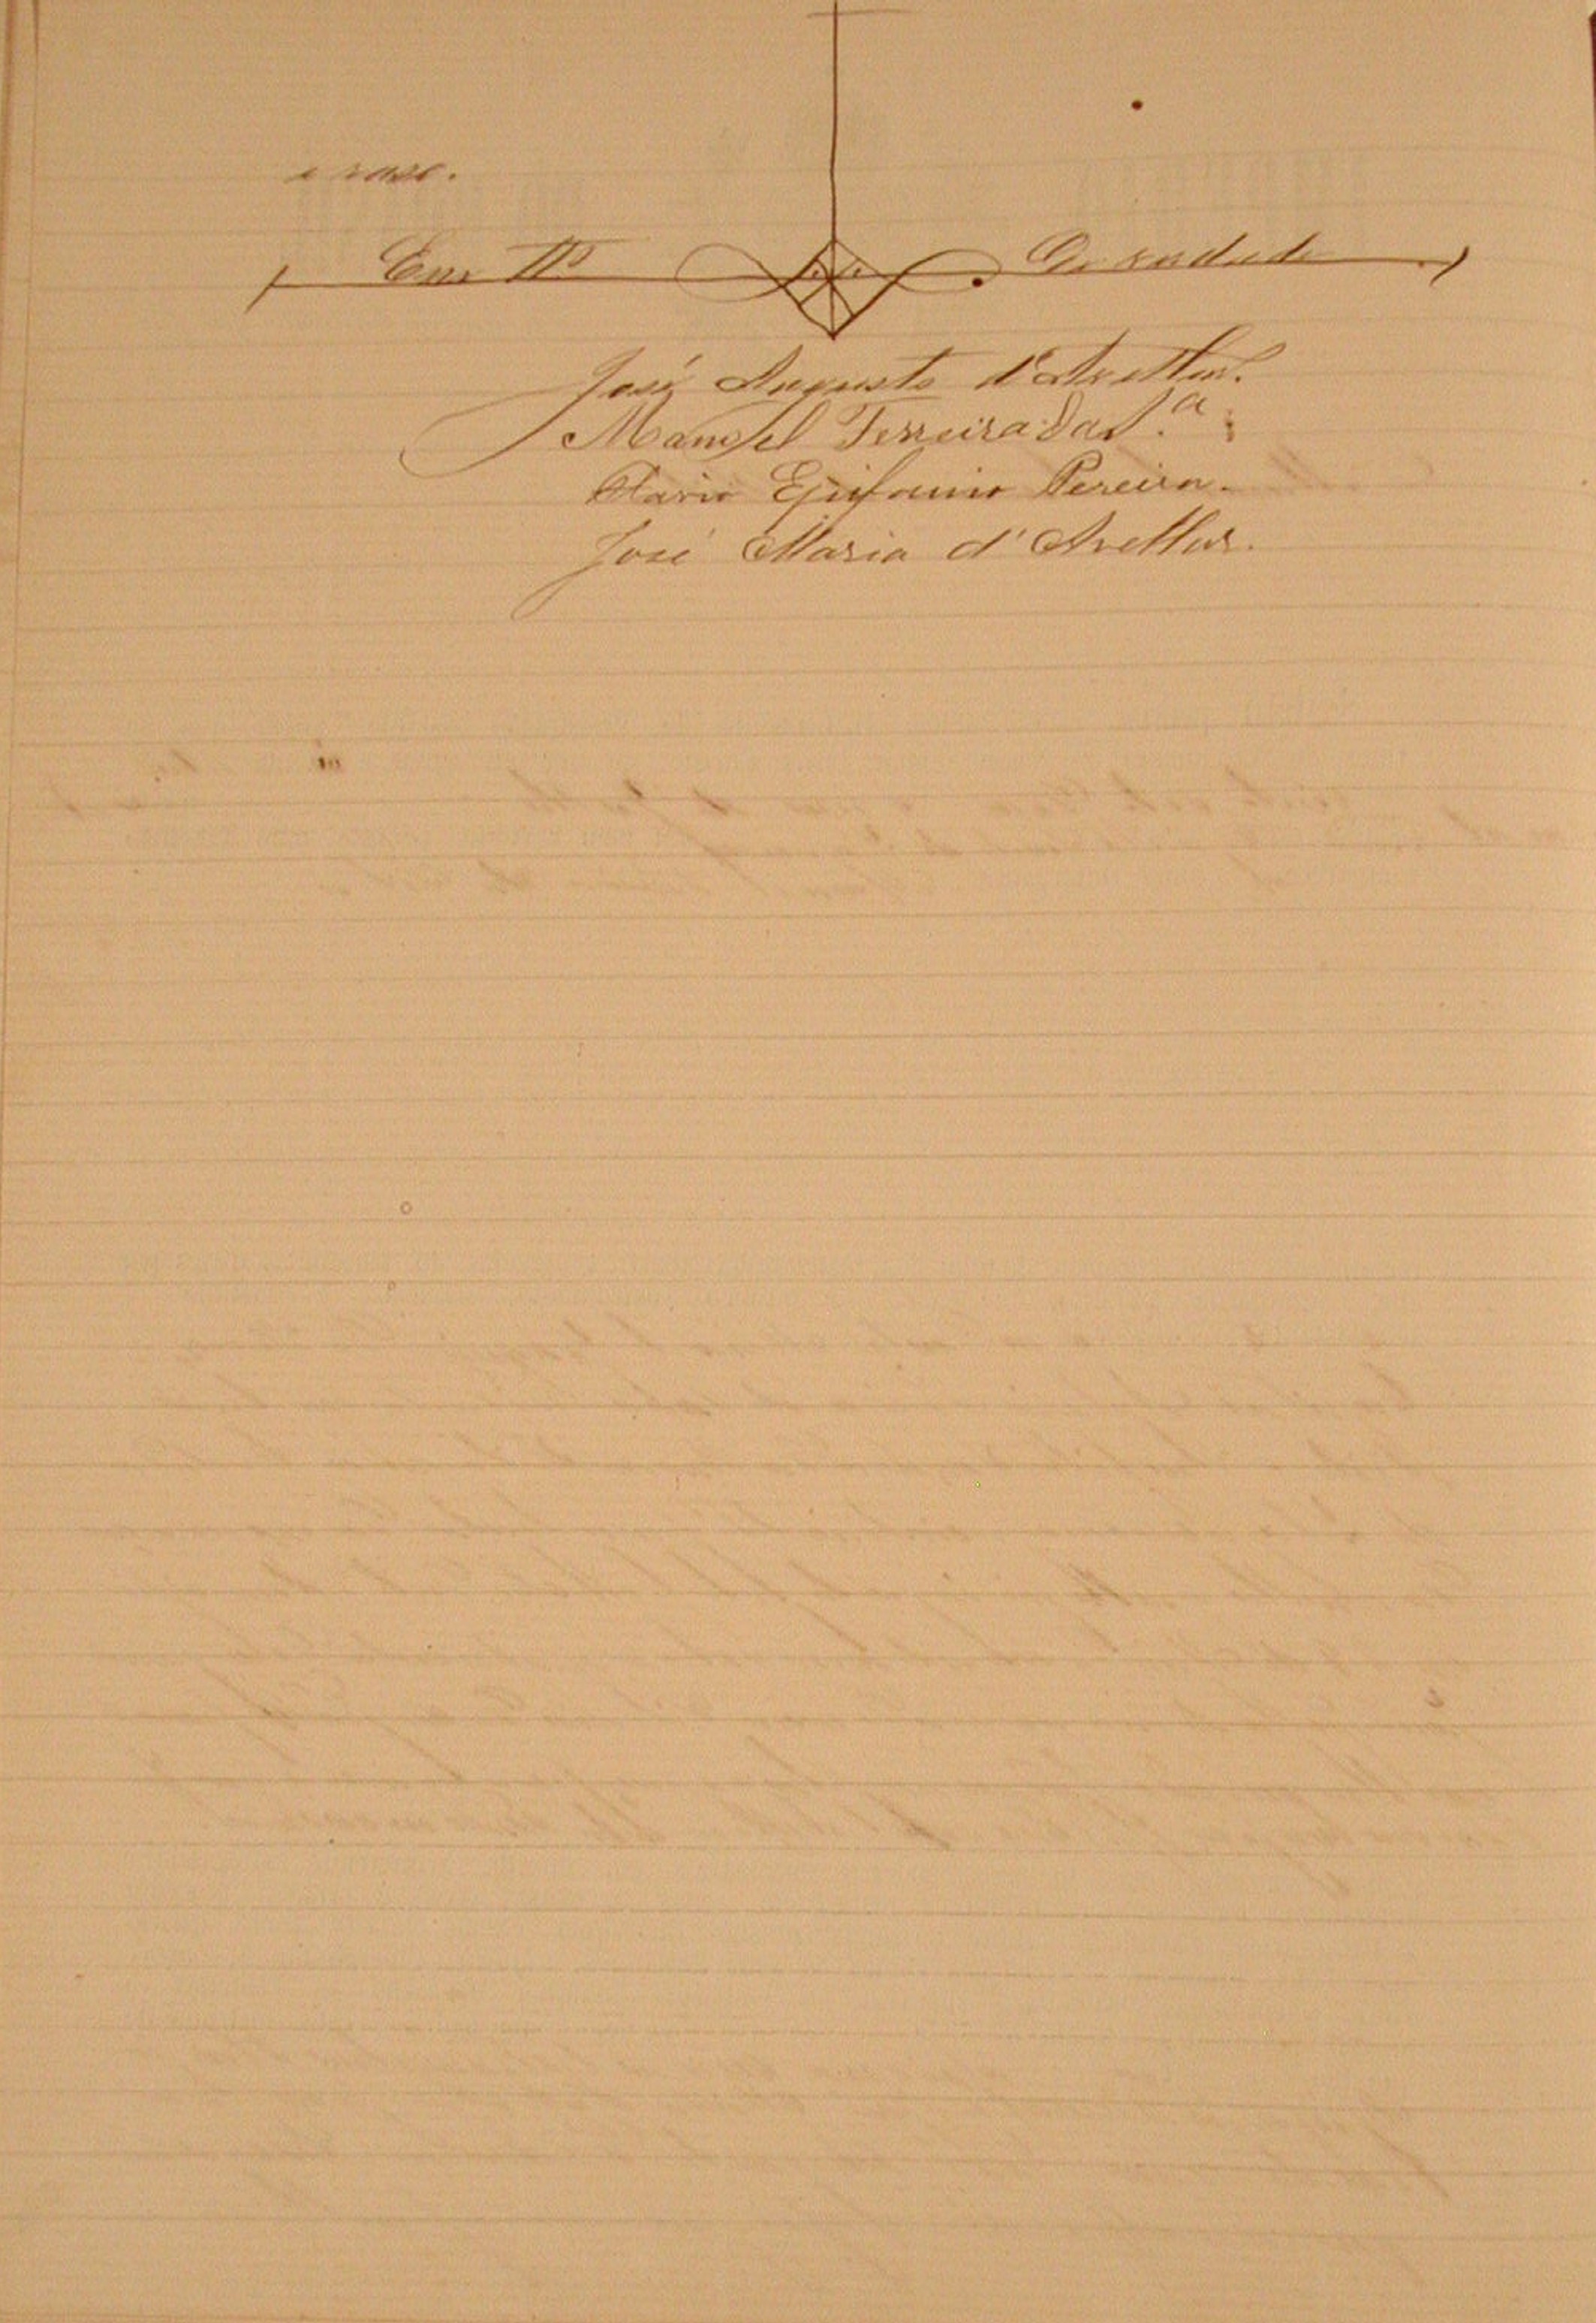 e rasa.
Em Tº De verdade
José Augusto d'Avellar.
Manoel Ferreira da S.ª
Mario Epifanio Pereira.
José Maria d'Avellar.